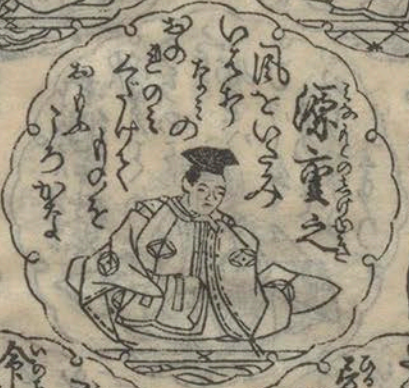 みなもとのしげゆき
源重之
風をいたみ
いはうつ
なみの
おの
れのみ
くだけて
ものを
おもふ
ころかな